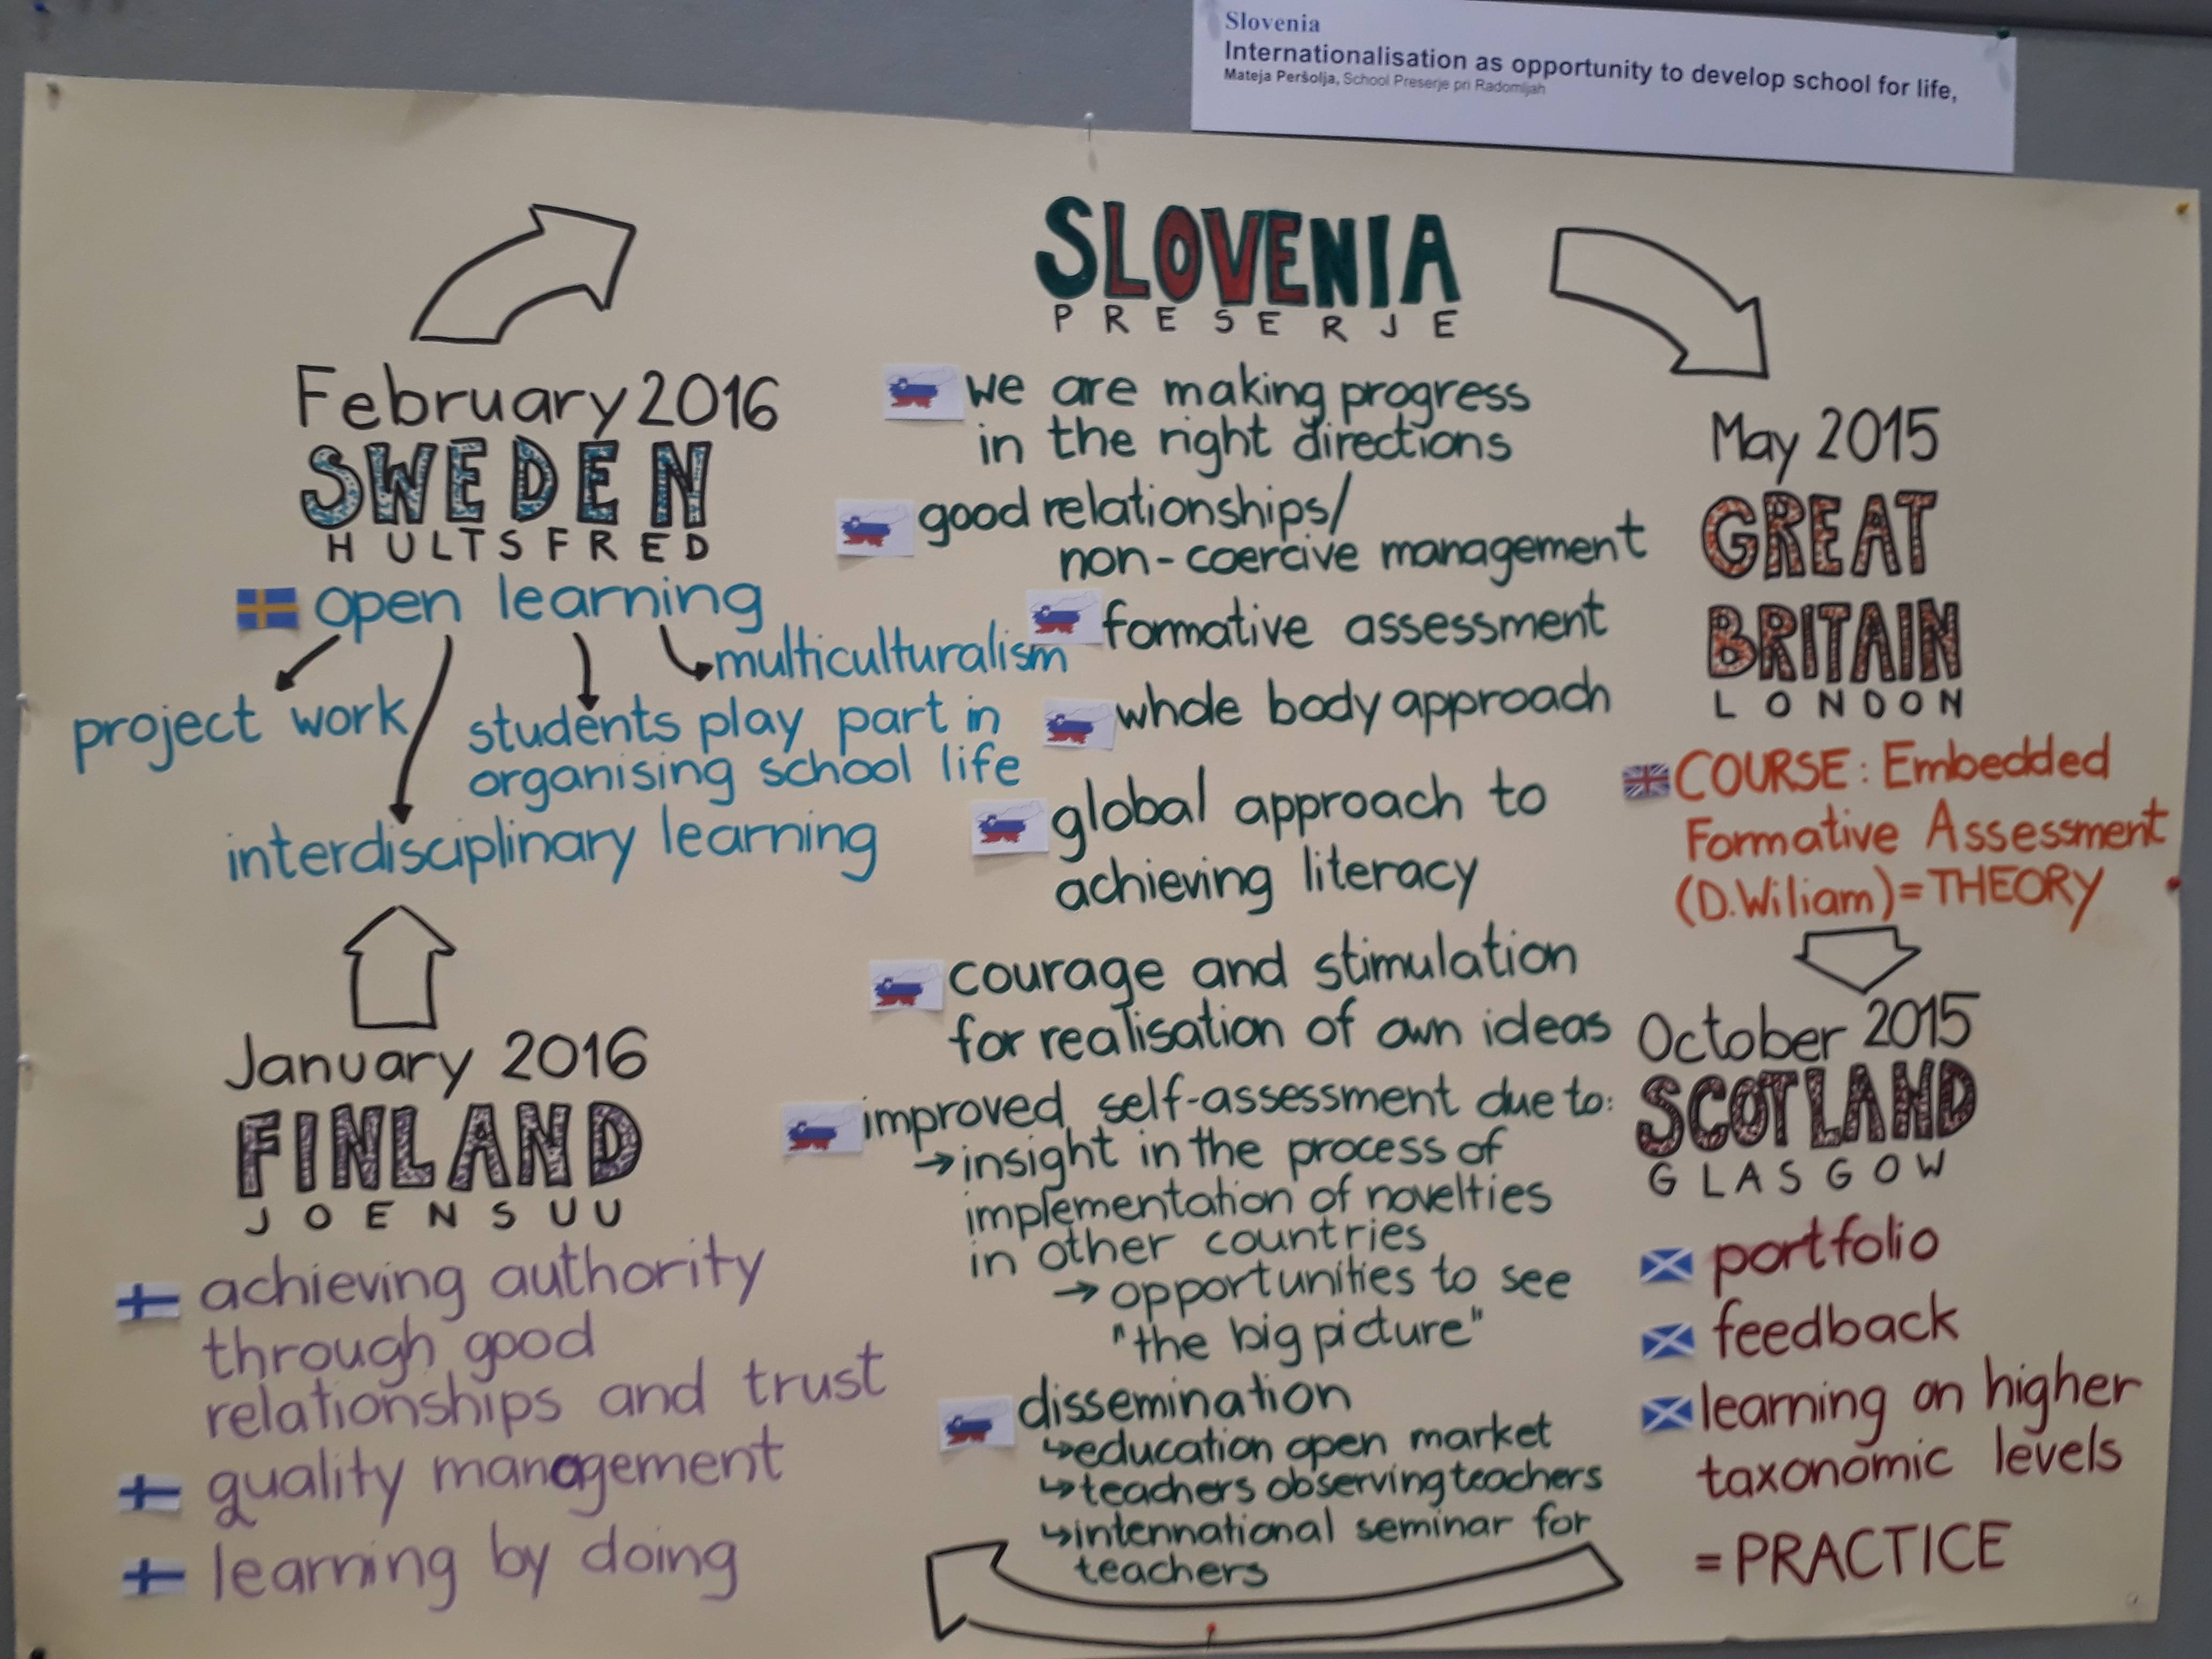 Slovenia
Internationalisation as opportunity to develop school for life,
Mateja Peršolja, School Preserje pri Radomljah
SLOVENIA
PRESERJE
we are making progress
in the right directions
good relationships/
non-coercive management
formative assessment
whole body approach
global approach to
achieving literacy
courage and stimulation
for realisation of own ideas
improved self-assessment due to:
→insight in the process of
implementation of novelties
in other countries
→opportunities to see
"the big picture"
dissemination
↳education open market
↳teachers observing teachers
↳internnational seminar for
teachers
May 2015
GREAT
BRITAIN
LONDON
COURSE: Embedded
Formative Assessment
(D.Wiliam)=THEORY
October 2015
SCOTLAND
GLASGOW
portfolio
feedback
learning on higher
taxonomic levels
=PRACTICE
January 2016
FINLAND
JOENSUU
achieving authority
through good
relationships and trust
quality management
learning by doing
February 2016
SWEDEN
HULTSFRED
open learning
multiculturalism
project work
students play part in
organising school life
interdisciplinary learning